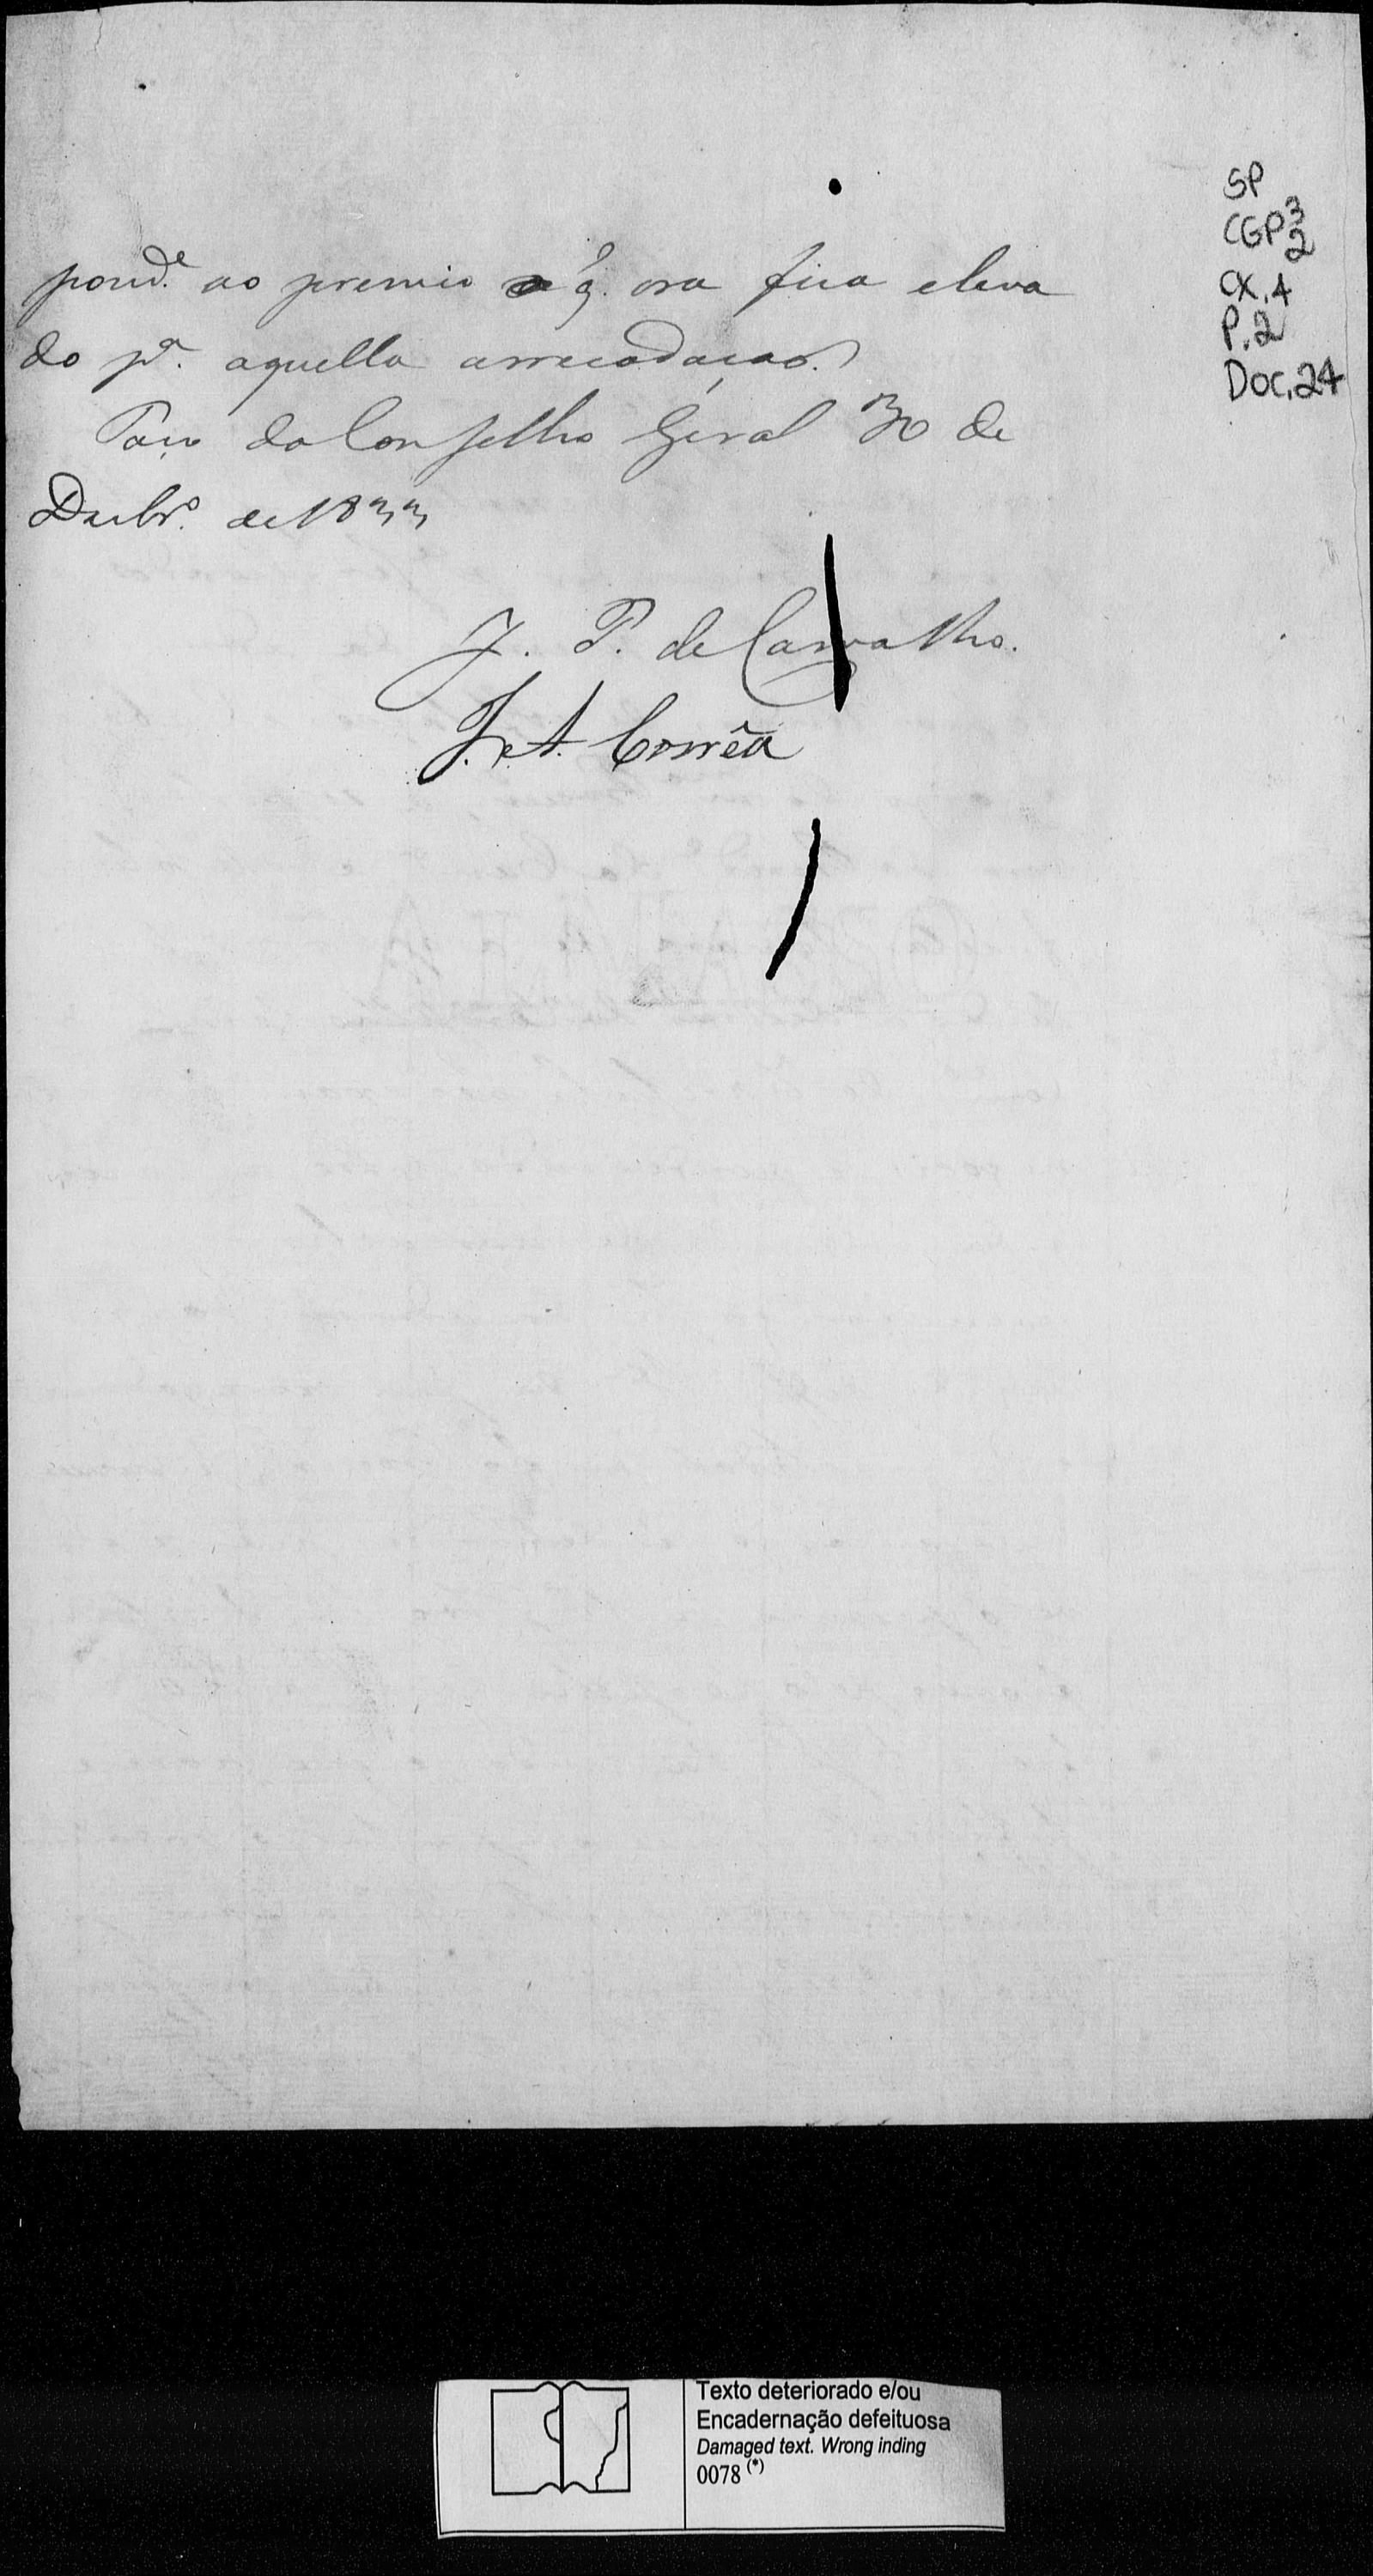 SP
CGP 3
2
CX.4
P.2
Doc.24
pond.e ao premio a q. ora fica eleva
do p.a aquella arrecadação.
Paço do Conselho Geral 30 de
Dezbr.o de 1833
J. P. de Carvalho.
J. A. Corrêa
Texto deteriorado e/ou
Encadernação defeituosa
Damaged text. Wrong inding
0078 (*)